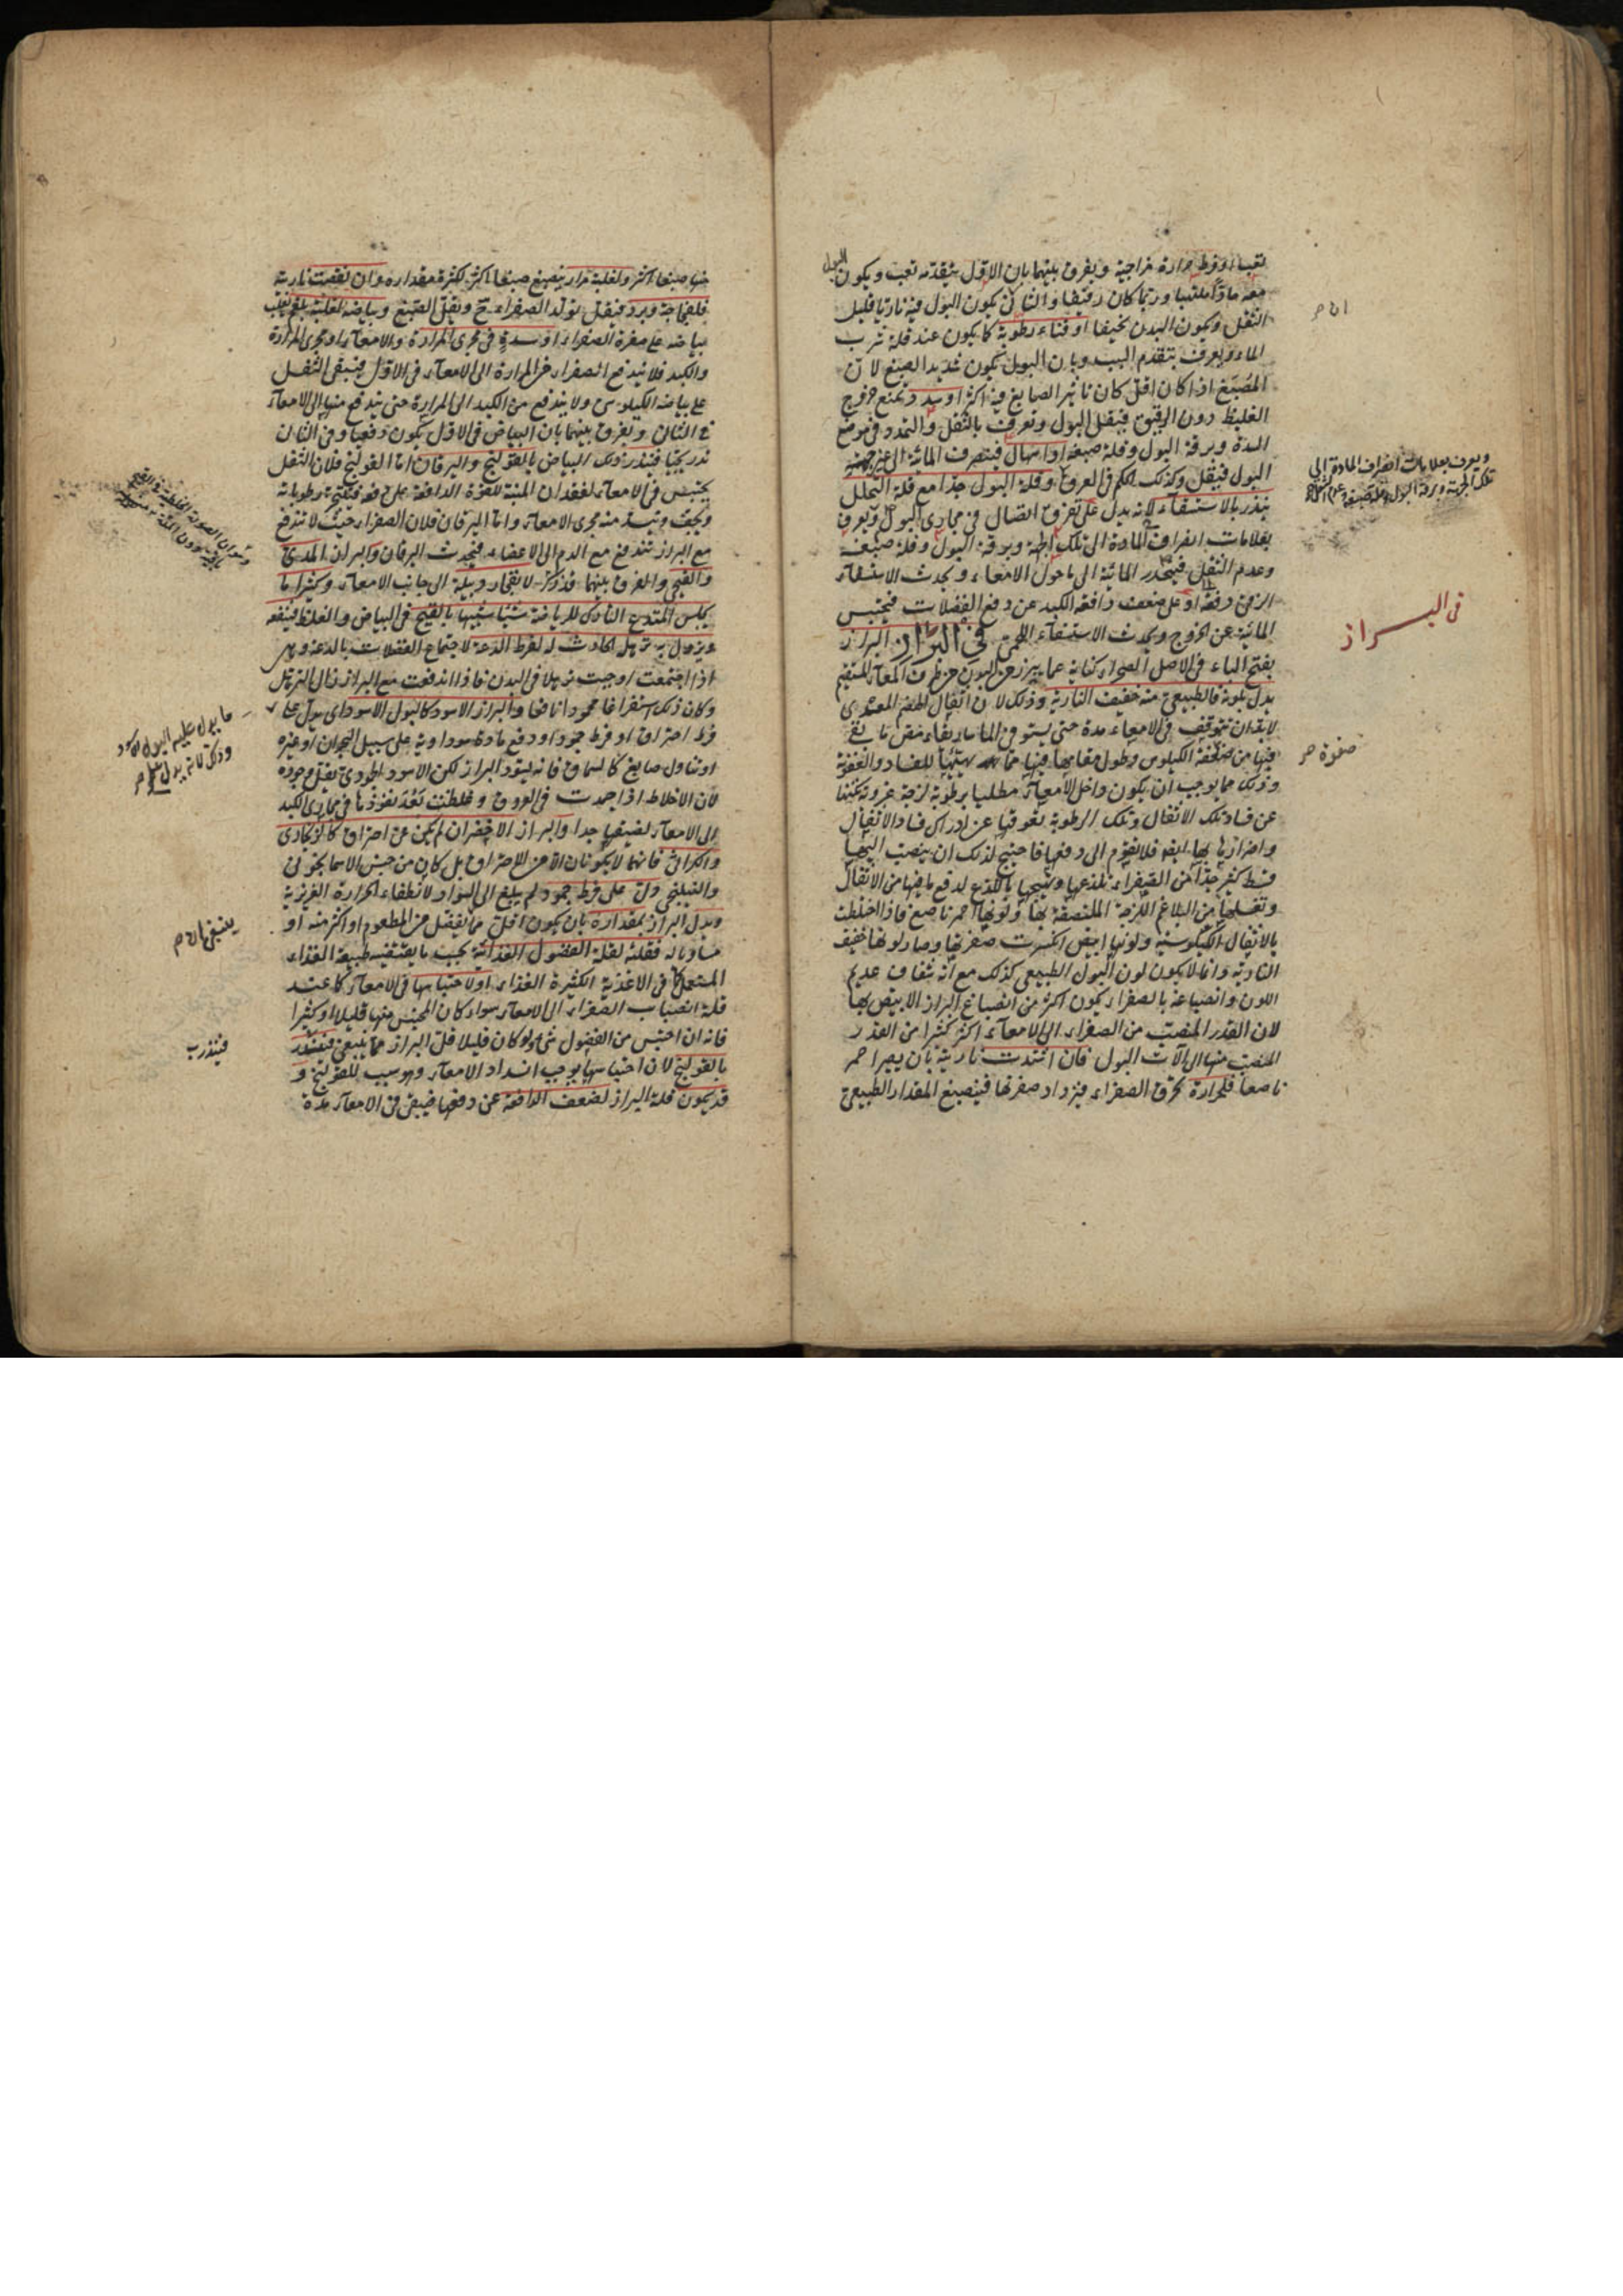 لتعب او فرط حرارة مزاجية ويفرق بينهما بان الاول يتقدمه تعب ويكون البول
معه حادا ملتهبا وربما كان رقيقا والثاني يكون البول فيه ناريا قليل
الثقل ويكون البدن نحيفا او فناء رطوبة كما يكون عند قلة شرب
الماء ويعرف بتقدم السبب وبان البول يكون شديد الصبغ لان
المصبغ اذا كان اقل كان تاثير الصابغ فيه اكثر او سدد يمنع خروج
الغليظ دون الرقيق فيقل البول وتعرف بالثقل والتمدد في موضع
السدة وبرقة البول وقلة صبغه او اسهال فينصرف المائية الى غير جهة
البول فيقل وكذلك الحكم في العروق وقلة البول جدا مع قلة التحلل
ينذر بالاستسقاء لانه يدل على تفرق اتصال في مجاري البول ويعرف
بعلامات انصراف المادة الى تلك الجهة وبرقة البول وقلة صبغه
وعدم الثقل فينحدر المائية الى ما حول الامعاء ويحدث الاستسقاء
الزقي دفعة او على ضعف دافعة الكبد عن دفع الفضلات فيحتبس
المائية عن الخروج ويحدث الاستسقاء اللحمي في البراز البراز
بفتح الباء في الاصل الصحراء كناية عما يبرز من البدن من طرف المعاء المستقيم
يدل بلونه فالطبيعي منه خفيف النارية وذلك لان اثفال الهضم المعدي
لابد ان تتوقف في الامعاء مدة حتى يستوفي الماساريقاء مص ما بقي
فيها من صفوة الكيلوس وطول مقامها فيها مما يهيئها للفساد والعفونة
وذلك مما يوجب ان يكون داخل الامعاء مطليا برطوبة لزجة غروية تكنها
عن فساد تلك الاثفال وتلك الرطوبة تعوقها عن ادراك فساد الاثفال
واضرارها بها ايضا فلا تقوم الى دفعها فاحتيج لذلك ان ينصب اليها
قسط كثير جدا من الصفراء تلذعها وتهيجها باللذع لدفع ما فيها من الاثفال
وتغسلها من البلاغم اللزجة الملتصقة بها ولونها احمر ناصع فاذا اختلطت
بالاثفال الكيلوسية ولونها ابيض انكسرت صفرتها وصار لونها خفيف
النارية وانما لا يكون لون البول الطبيعي كذلك مع انه شفاف عديم
اللون وانصباغه بالصفراء يكون اكثر من انصباغ البراز الابيض بها
لان القدر المنصب من الصفراء الى الامعاء اكثر كثيرا من القدر
المنصب منها الى آلات البول فان اشتدت ناريته بان يصير احمر
ناصعا فلحرارة تحرق الصفراء فيزداد صفرتها فينصبغ المقدار الطبيعي
ويعرف بعلامات انصراف المادة الى
تلك الجهة وبرقة البول وقلة صبغه وعدم الثقل
في البراز
صفوة
منها صبغا اكثر ولغلبة مرار ينصبغ صبغا اكثر لكثرة مقداره وان نقصت ناريته
فلفجاجة وبرد فيقل تولد الصفراء ح ويقل الصبغ وبياضه لغلبة بلغم يغلب
بياضه على صفرة الصفراء او سدة في مجرى المرارة والامعاء او مجرى المرارة
والكبد فلا يندفع الصفراء من المرارة الى الامعاء في الاول فيبقى الثفل
على بياضه الكيلوسي ولا يندفع من الكبد الى المرارة حتى يندفع منها الى الامعاء
في الثاني ويفرق بينهما بان البياض في الاول يكون دفعيا وفي الثاني
تدريجيا فينذر ذلك البياض بالقولنج واليرقان اما القولنج فلان الثفل
يحتبس في الامعاء لفقدان المنبه للقوة الدافعة على دفعه
ويجف وينسد منه مجرى الامعاء واما اليرقان فلان الصفراء حيث لا تندفع
مع البراز تندفع مع الدم الى الاعضاء فيحدث اليرقان والبراز المدي
والقيحي والفرق بينهما قد ذكر لانفجار دبيلة الى جانب الامعاء وكثيرا ما
يجلس المتدع التارك للرياضة شيئا شبيها بالقيح في البياض والغلظ فينفعه
ويزول به ترهل الحادث له لفرط الدعة لاجتماع الفضلات بالدعة وهي
اذا اجتمعت اوجبت ترهلا في البدن فاذا اندفعت مع البراز زال الترهل
وكان ذلك استفراغا محمودا نافعا والبراز الاسود كالبول الاسود اي يدل على
فرط احتراق او فرط جمود او دفع مادة سوداوية على سبيل البحران او غيره
او تناول صابغ كالسماق فانه يسود البراز لكن الاسود الجمودي يقل وجوده
لان الاخلاط اذا جمدت في العروق وغلظت بعد نفوذها في مجاري الكبد
الى الامعاء لضيقها جدا والبراز الاخضر ان لم يكن عن احتراق كالزنجاري
والكراثي فانهما لا يكونان الا من الاحتراق بل كان من جنس الاسمانجوني
والنيلنجي دل على فرط جمود لم يبلغ الى السواد لانطفاء الحرارة الغريزية
ويدل البراز بمقداره بان يكون اقل مما يفضل من المطعوم او اكثر منه او
مساويا له فقلته لقلة الفضول الغذائية بحسب ما يقتضيه طبيعة الغذاء
المستعمل كما في الاغذية الكثيرة الغذاء او لاحتباسها في الامعاء كما عند
قلة انصباب الصفراء الى الامعاء سواء كان المحتبس منها قليلا او كثيرا
فانه ان احتبس من الفضول شيء ولو كان قليلا قل البراز مما ينبغي فينذر
بالقولنج لان احتباسها يوجب انسداد الامعاء وهو سبب للقولنج و
قد يكون قلة البراز لضعف الدافعة عن دفعها فيبقى في الامعاء مدة
ما يدل عليه البول الاسود
فينذر ب